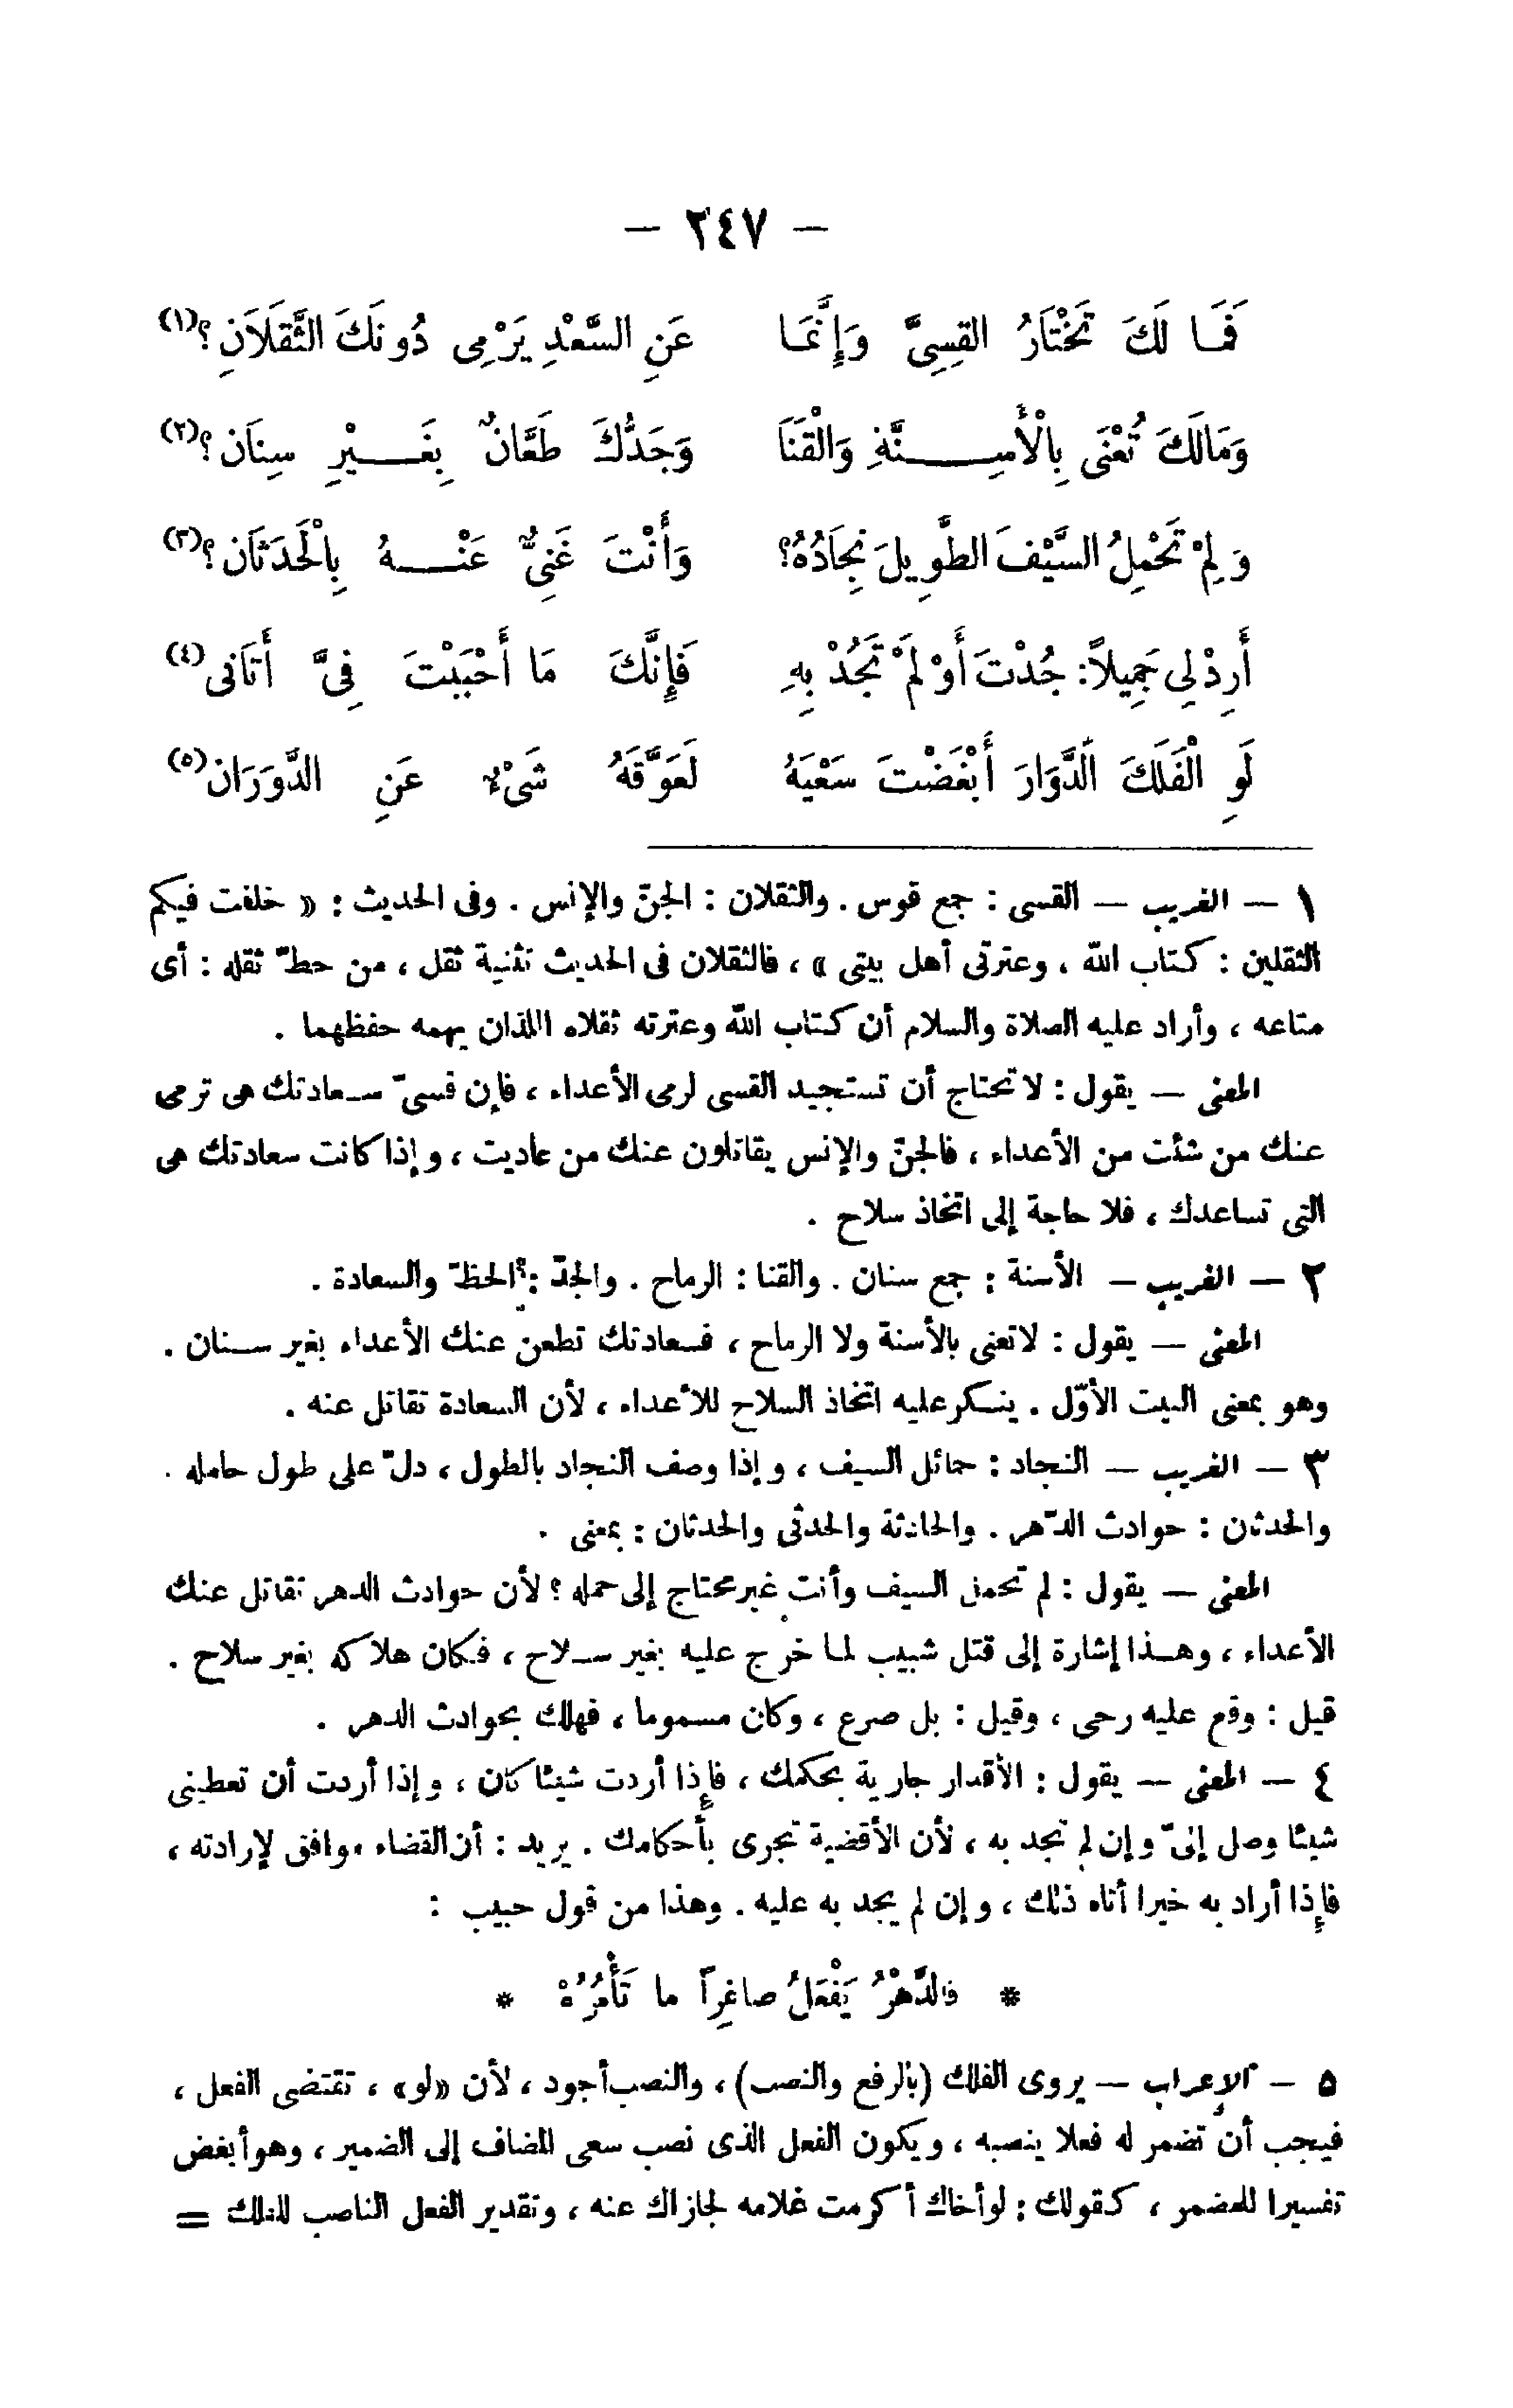 — ٢٤٧ —
فَمَا لَكَ تَخْتَارُ القِسِىَّ وَإِنَّمَا عَنِ السَّعْدِ يَرْمِى دُونَكَ الثَّقَلَانِ؟(١)
وَمَالَكَ تُعْنَى بِالْأَسِنَّةِ وَالْقَنَا وَجَدُّكَ طَعَّانٌ بِغَيْرِ سِنَانِ؟(٢)
وَلِمْ تَحْمِلُ السَّيْفَ الطَّوِيلَ نِجَادُهُ؟ وَأَنْتَ غَنِىٌّ عَنْهُ بِالْحَدَثَانِ؟(٣)
أَرِدْ لِى جَمِيلاً: جُدْتَ أَوْ لَمْ تَجُدْ بِهِ فَإِنَّكَ مَا أَحْبَبْتَ فِىَّ أَتَانِى(٤)
لَوِ الْفَلَكَ الَدَّوَارَ أَبْغَضْتَ سَعْيَهُ لَعَوَّقَهُ شَىْءٌ عَنِ الدَّوَرَانِ(٥)
١ — الغريب — القسى : جمع قوس . والثقلان : الجنّ والإنس . وفى الحديث : « خلفت فيكم
الثقلين : كتاب اللّه ، وعترتى أهل بيتى » ، فالثقلان فى الحديث تثنية ثقل ، من حطّ ثقله : أى
متاعه ، وأراد عليه الصلاة والسلام أن كتاب اللّه وعترته ثقلاه اللذان يهمه حفظهما .
المعنى — يقول : لا تحتاج أن تستجيد القسى لرمى الأعداء ، فإن قسىّ سعادتك هى ترمى
عنك من شئت من الأعداء ، فالجنّ والإنس يقاتلون عنك من عاديت ، وإذا كانت سعادتك هى
التى تساعدك ، فلا حاجة إلى اتخاذ سلاح .
٢ — الغريب — الأسنة : جمع سنان . والقنا : الرماح . والجدّ : الحظّ والسعادة .
المعنى — يقول : لاتعنى بالأسنة ولا الرماح ، فسعادتك تطعن عنك الأعداء بغير سنان .
وهو بمعنى البيت الأوّل . ينكر عليه اتخاذ السلاح للأعداء ، لأن السعادة تقاتل عنه .
٣ — الغريب — النجاد : حمائل السيف ، وإذا وصف النجاد بالطول ، دلّ على طول حامله .
والحدثان : حوادث الدّهر . والحادثة والحدثى والحدثان : بمعنى .
المعنى — يقول : لم تحمل السيف وأنت غير محتاج إلى حمله ؟ لأن حوادث الدهر تقاتل عنك
الأعداء ، وهذا إشارة إلى قتل شبيب لما خرج عليه بغير سلاح ، فكان هلاكه بغير سلاح .
قيل : وقع عليه رحى ، وقيل : بل صرع ، وكان مسموما ، فهلك بحوادث الدهر .
٤ — المعنى — يقول : الأقدار جارية بحكمك ، فإذا أردت شيئا كان ، وإذا أردت أن تعطينى
شيئا وصل إلىّ وإن لم تجد به ، لأن الأقضية تجرى بأحكامك . يريد : أن القضاء موافق لإرادته ،
فإذا أراد به خيرا أتاه ذلك ، وإن لم يجد به عليه . وهذا من قول حبيب :
* فالدَّهْرُ يَفْعَلُ صاغِراً ما تَأْمُرُهْ *
٥ — الإعراب — يروى الفلك (بالرفع والنصب) ، والنصب أجود ، لأن «لو» ، تقتضى الفعل ،
فيجب أن تضمر له فعلا ينصبه ، ويكون الفعل الذى نصب سعى المضاف إلى الضمير ، وهو أبغض
تفسيرا للمضمر ، كقولك : لو أخاك أكرمت غلامه لجازاك عنه ، وتقدير الفعل الناصب للفلك =